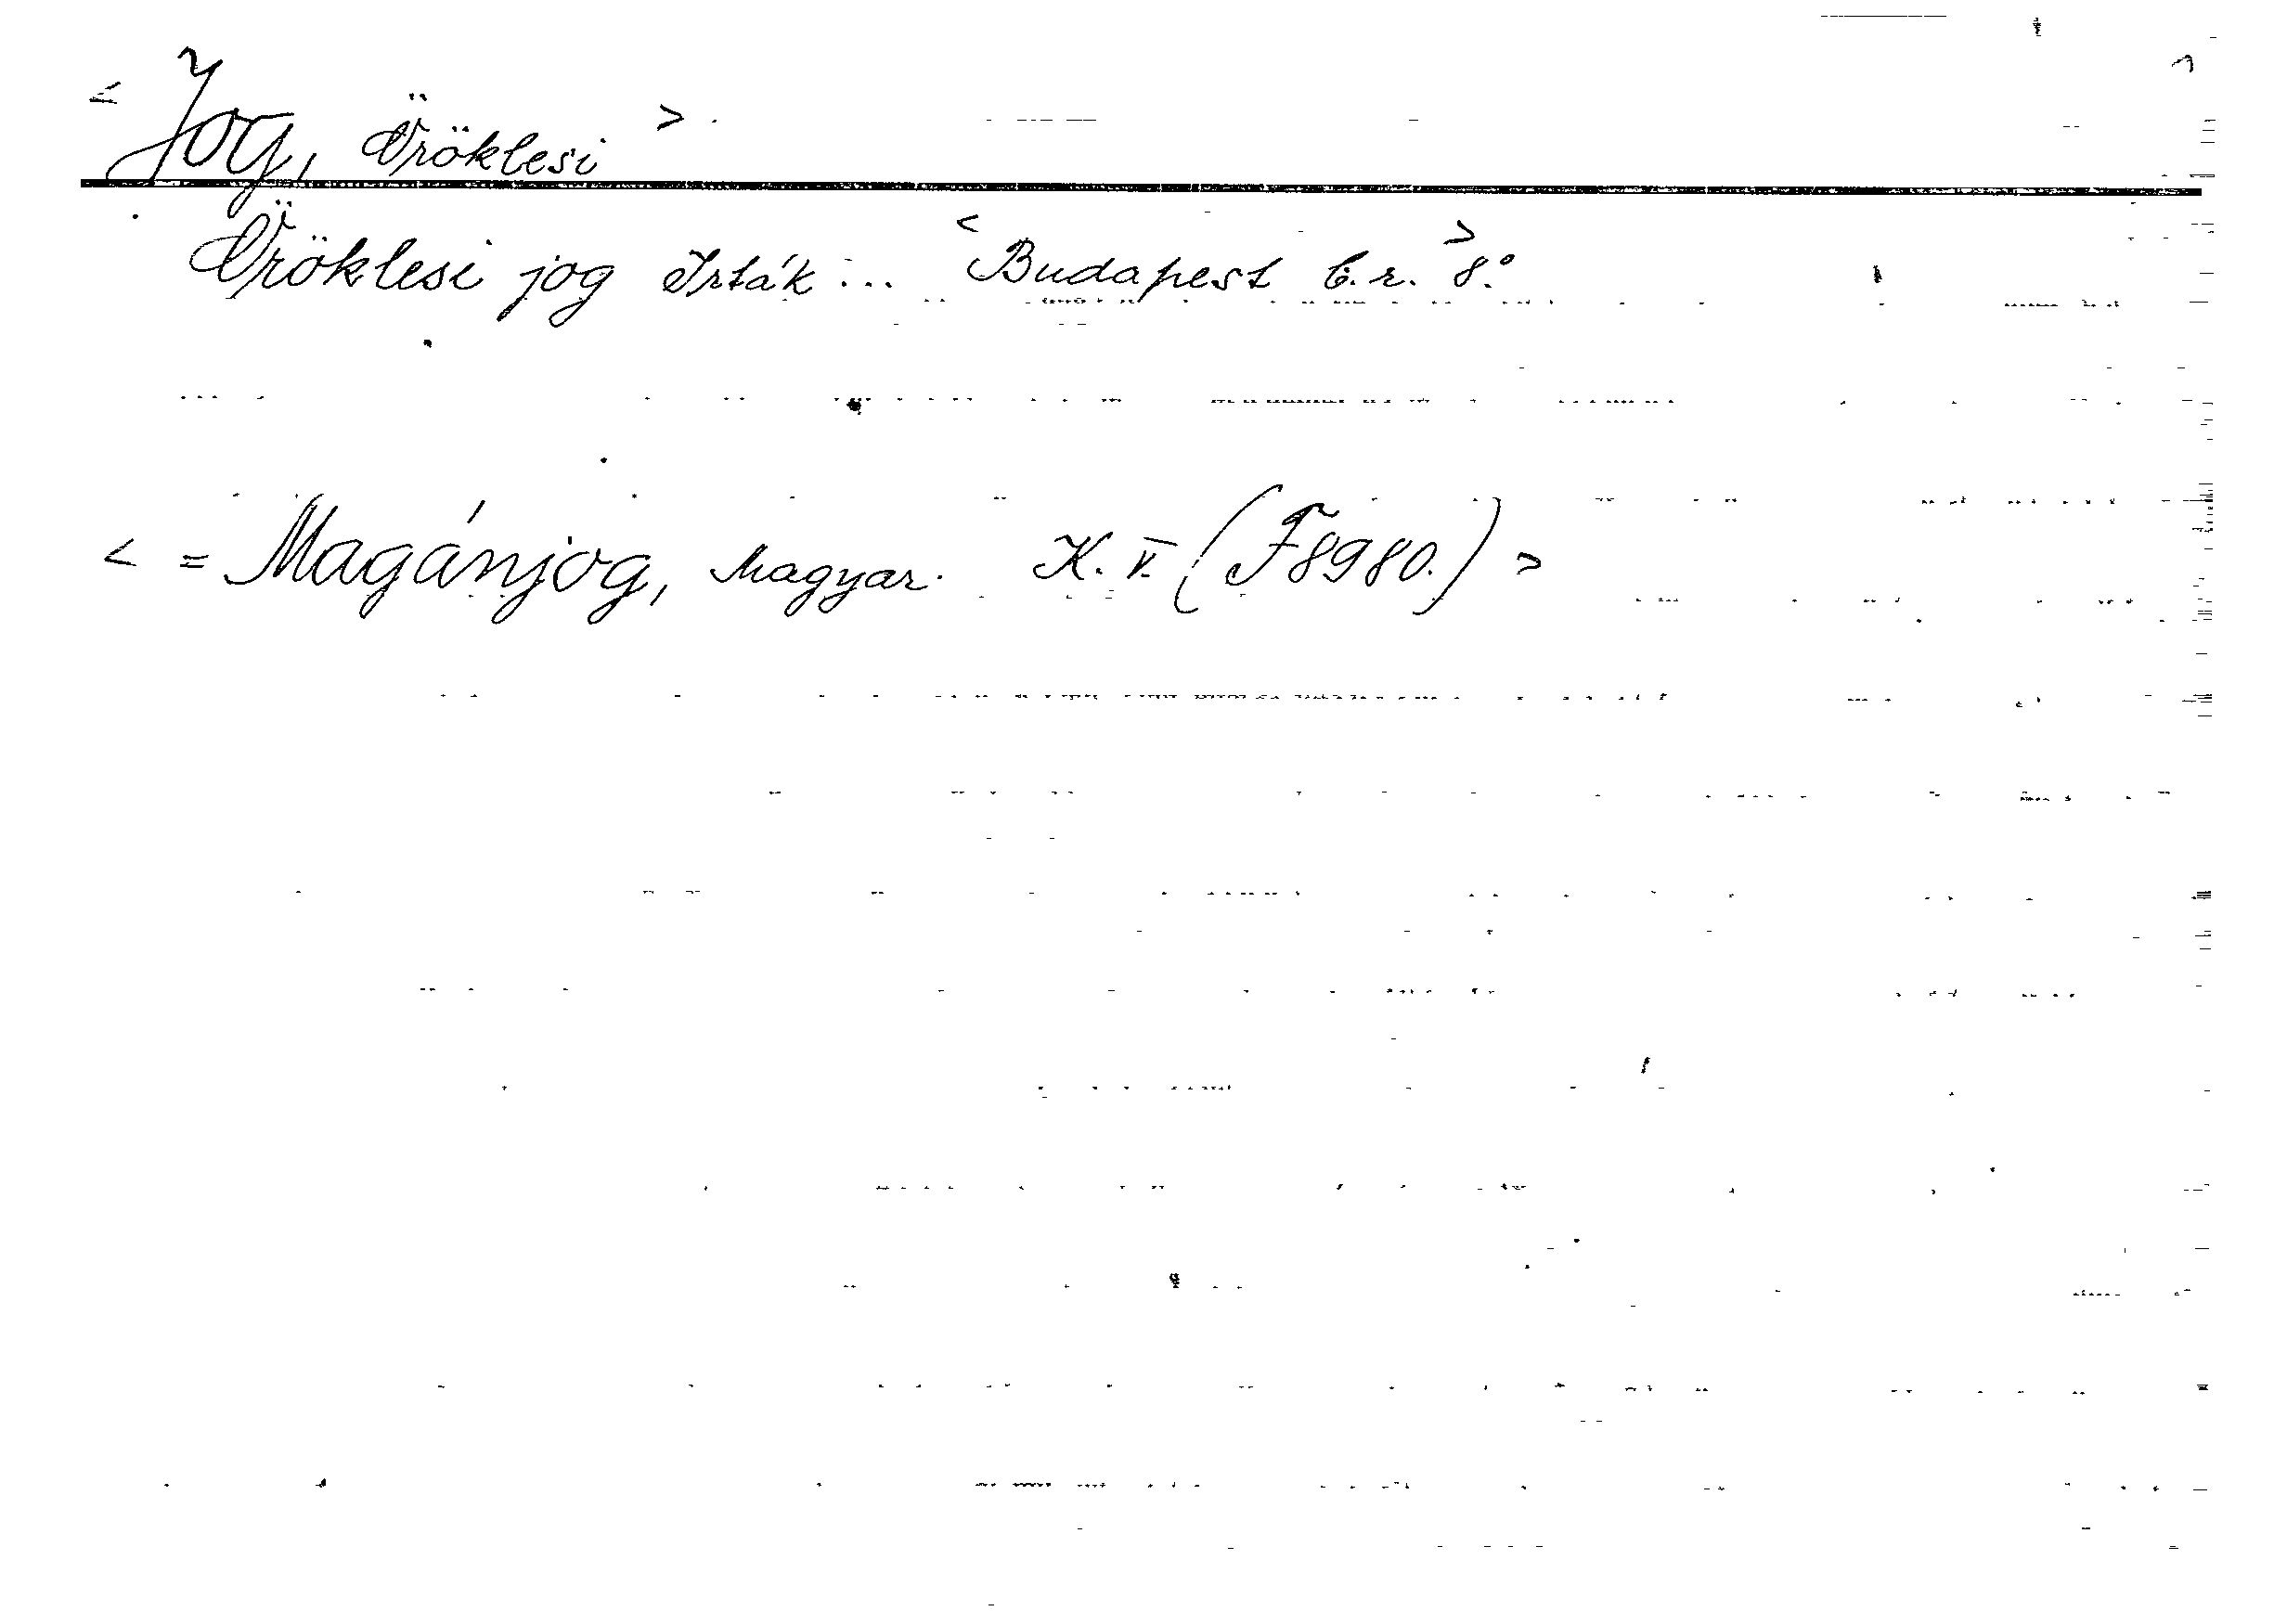 < Jog, Öröklesi >.
Öröklesi jog Irták ... <Budapest C. r.> 8.°
< = Magánjog, Magyar. K. V. (F8980.) >